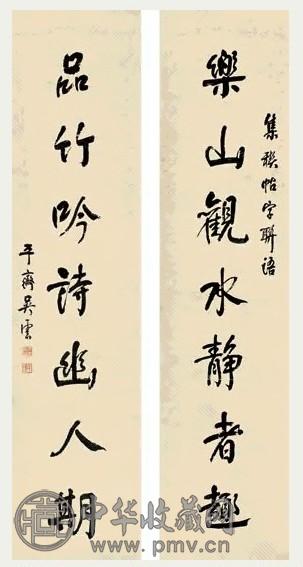 集稧帖字聯語
樂山觀水静者趣
品竹吟詩幽人
平齋吳雲
中华收藏网
www.pmv.cn